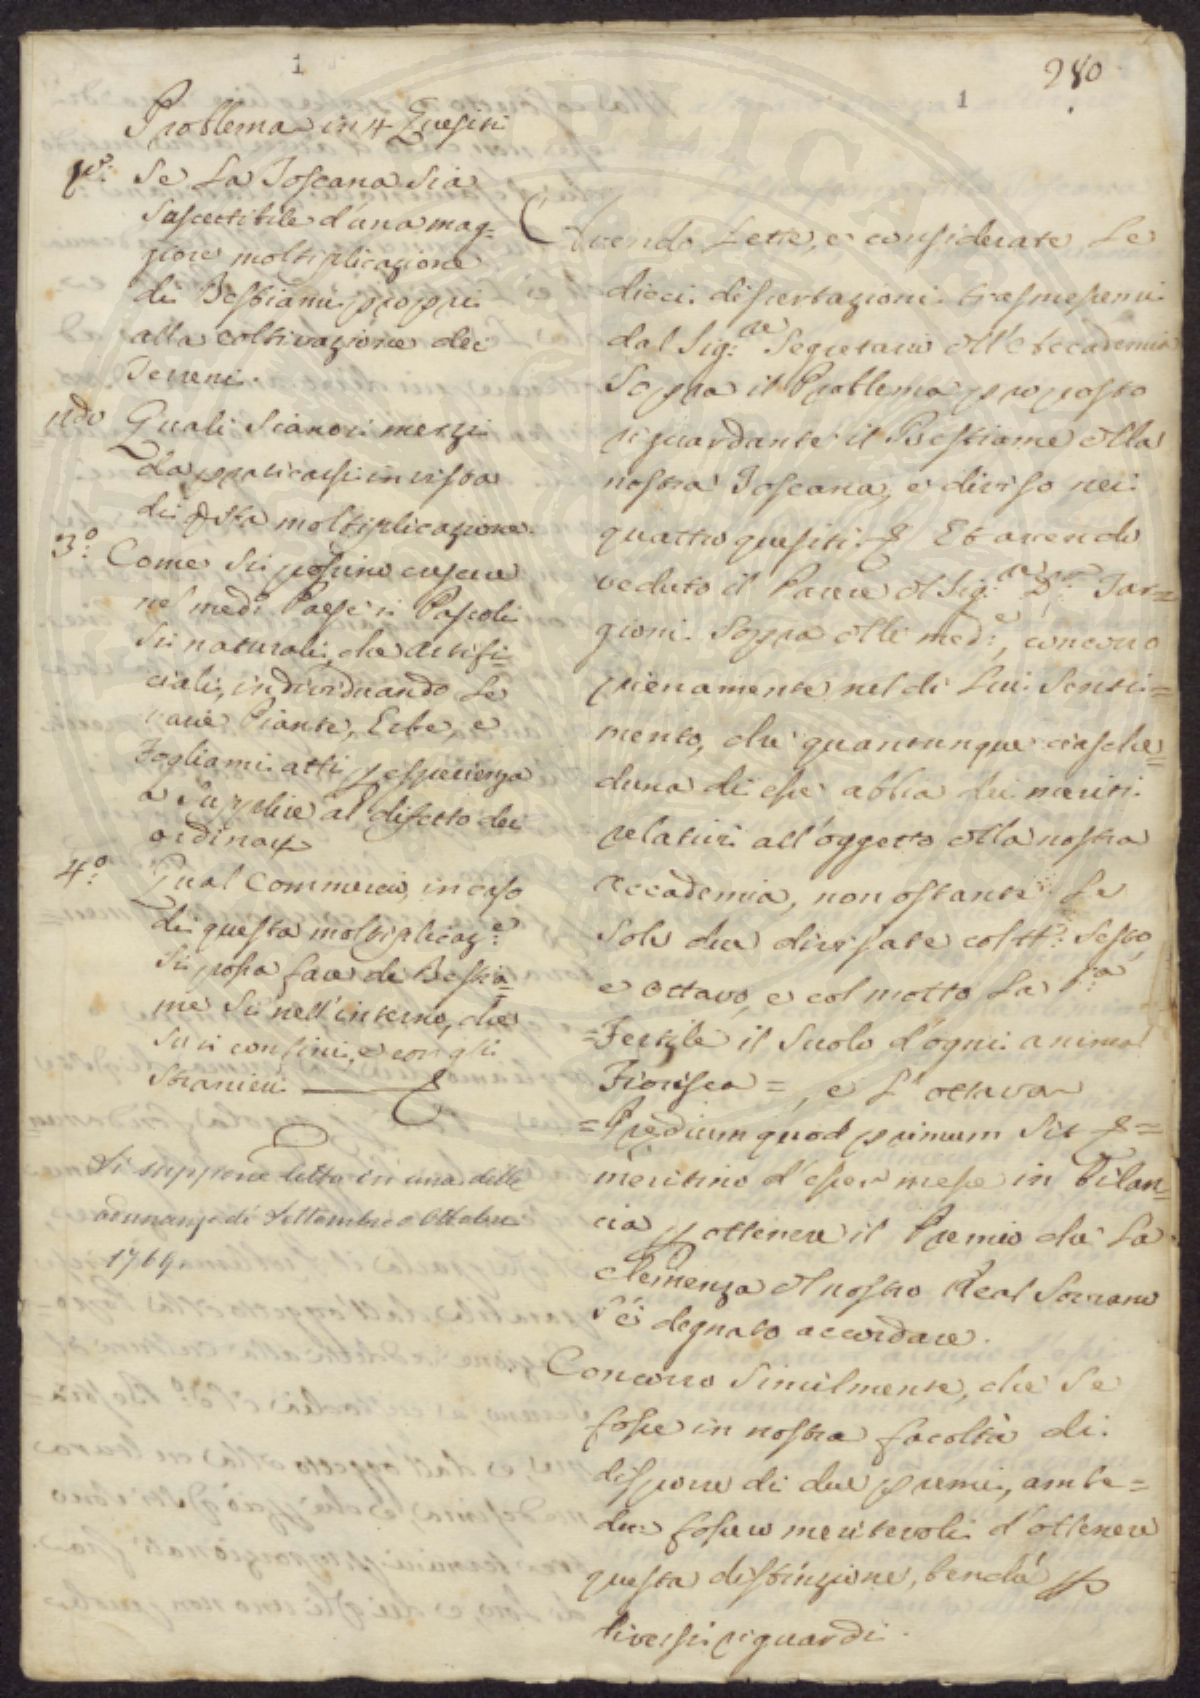 1
280
1
Problema in 4 Quesiti
p.º Se La Toscana sia
suscettibile d'una mag=
giore moltiplicazione
di Bestiami proprj
alla coltivazione dei
Terreni.
2do Quali siano i mezzi
da praticarsi in vista
di q.sta moltiplicazione.
3.º Come si possino crescere
ne' med.i Paesi i Pascoli
si naturali, che artifi=
ciali, individuando Le
varie Piante, Erbe, e
Fogliami atti p esperienza
a supplire al difetto dei
ordinarj
4.º Qual Commercio, in caso
di questa moltiplicaz.e
si possa fare di Bestia=
me si nell'interno, che
su i confini, e con gli
stranieri.
Si suppone letto in una delle
adunanze di Settembre o Ottobre
1769.
Avendo Lette, e considerate Le
dieci dissertazioni trasmessemi
dal Sig.re Segretario dll'Accademia
sopra il Problema proposto
riguardante il Bestiame dlla
nostra Toscana, e diviso nei
quattro quesiti. Et avendo
veduto il Parere dl Sig.re D.r Tar=
gioni sopra dlle med.e, concorro
pienamente nel di Lui senti=
mento, che quantunque ciasche=
duna di esse abbia dei meriti
relativi all'oggetto dlla nostra
Accademia, non ostante Le
sole due divisate col N.º Sesto,
e ottavo, e col motto La p.ra
=Fertile il suolo d'ogni anima
Fiorisca=, e L'ottava
=Predium quod primum sit=
meritino d'esser messe in bilan=
cia p ottenere il Premio che La
clemenza dl nostro Real Sovrano
s'è degnato accordare.
Concorro similmente, che se
fosse in nostra facoltà di
disporre di due premi, ambe=
due fossero meritevoli d'ottenere
questa distinzione, benchè p
diversi riguardi.